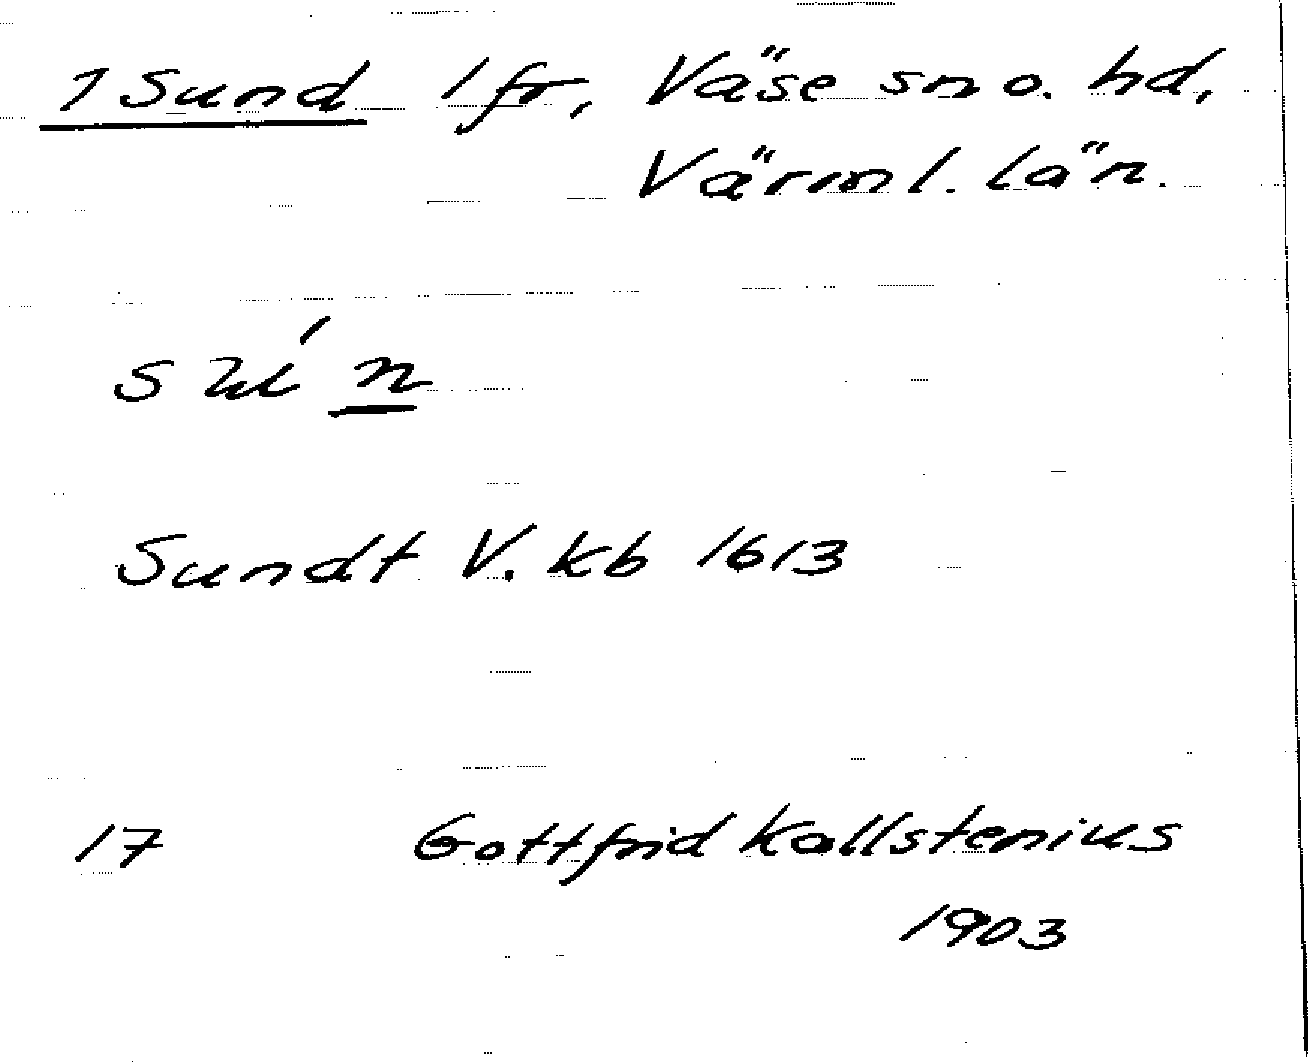 1 Sund 1 fr, Väse sn o. hd,
Värml. län.
Sundt V. kb 1613
17 Gottfrid Kallstenius
1903